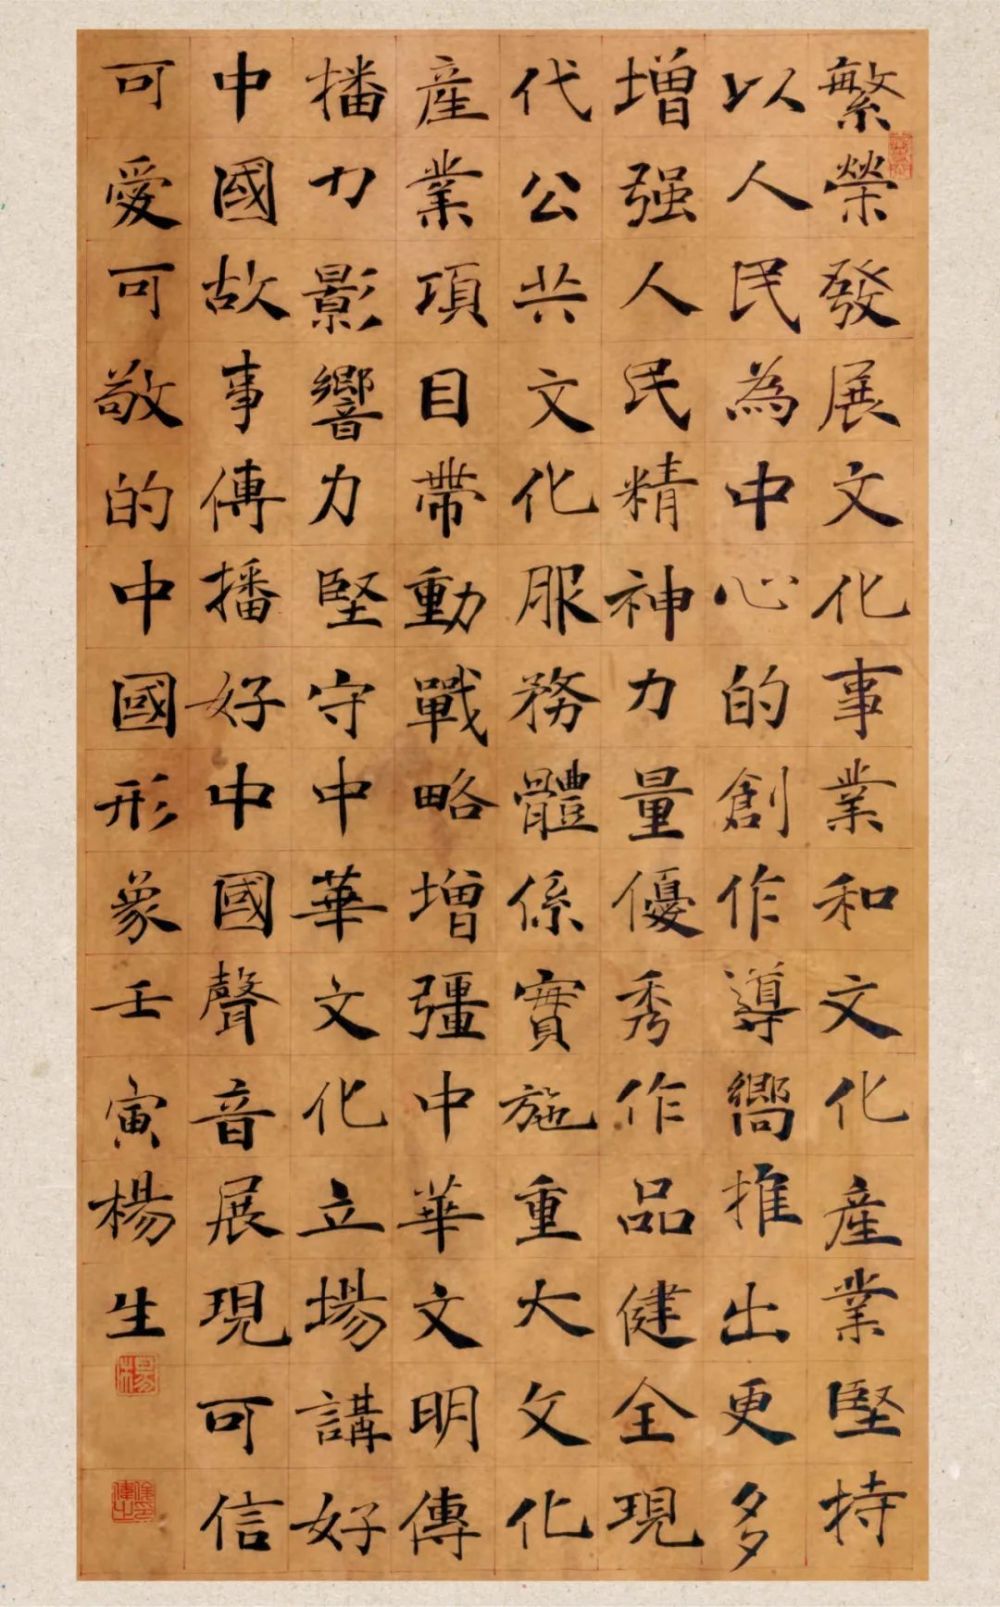 繁榮發展文化事業和文化產業堅持
以人民為中心的創作導嚮推出更多
增强人民精神力量優秀作品健全現
代公共文化服務體係實施重大文化
産業項目帶動戰略增彊中華文明傳
播力影響力堅守中華文化立場講好
中國故事傳播好中國聲音展現可信
可愛可敬的中國形象壬寅楊生